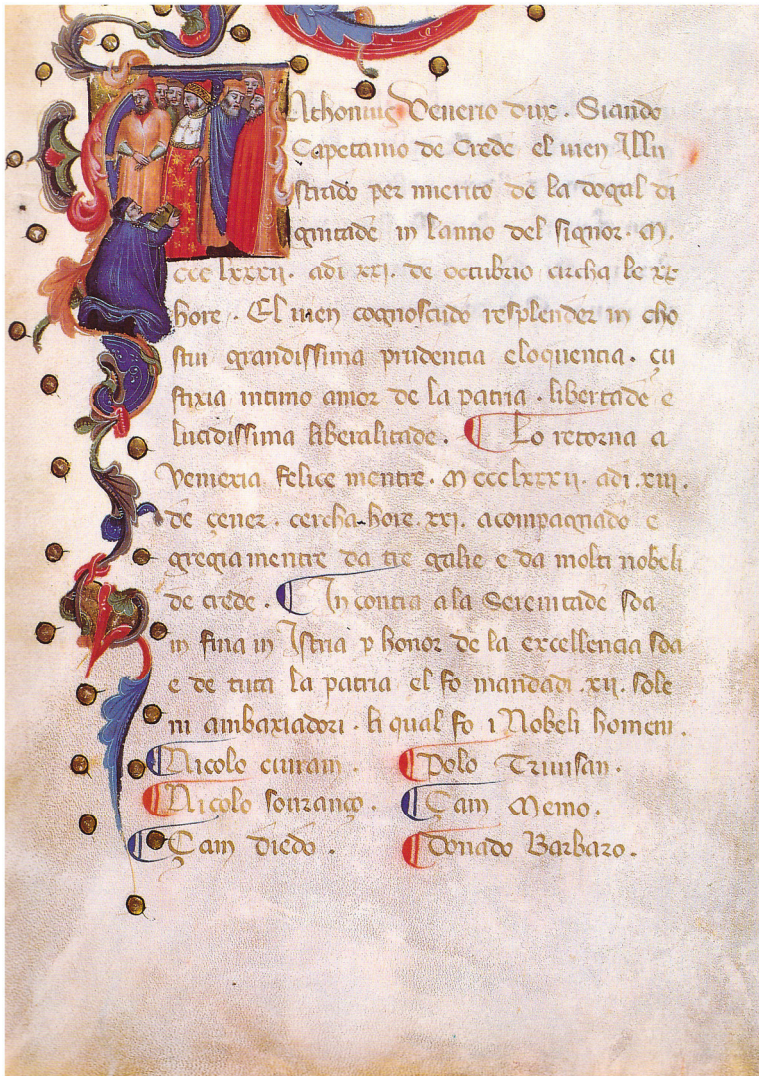 Anthonius Venerio dux. Siando
Capetanio de Crede el uien Illu
strado per merito de la dogal di
gnitade in lanno del signor. M.
ccc lxxxii. adi xxi. de octubrio circha le xx
hore. El uien cognoscudo resplender in cho
stui grandissima prudentia eloquentia. çu
stixia intimo amor de la patria. libertade e
lucidissima liberalitade. Lo retorna a
Veniexia felice mentre. M ccclxxxii. adi. xiii.
de çener. cercha. hore. xxi. acompagnado e
gregia mentre da tre galie e da molti nobeli
de crede. In contra a la Serenitade soa
in fina in Istria p honor de la excellencia soa
e de tuta la patria el fo mandadi. xii. sole
ni ambaxiadori. li qual fo i Nobeli homeni.
Nicolo ciuran. Polo Triuisan.
Nicolo souranço. Çam Memo.
Çam diedo. Donado Barbaro.